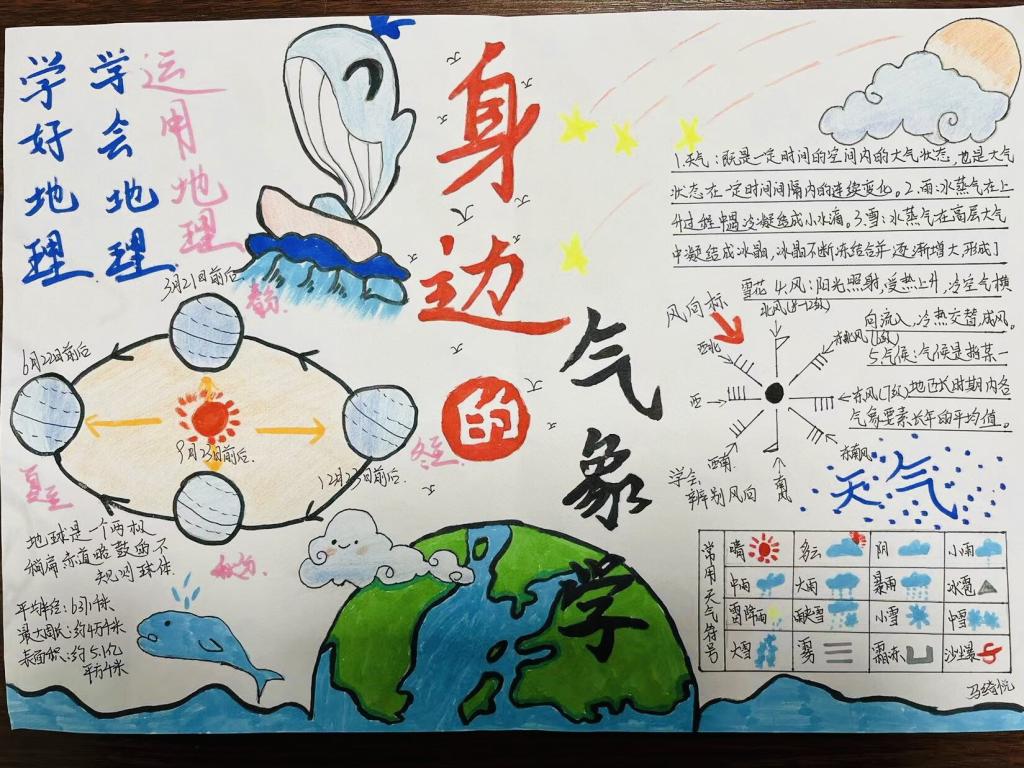 学好地理
学会地理
运用地理
身边的
气象学
3月21日前后
春分
6月22日前后
夏至
9月23日前后.
秋分
12月23日前后.
冬至
地球是一个两极
稍扁赤道略鼓的不
规则球体.
最大周长:约4万千米
表面积:约5.1亿
平方千米
1.天气:既是一定时间的空间内的大气状态,也是大气
状态在一定时间间隔内的连续变化。2.雨:水蒸气在上
升过程中遇冷凝结成小水滴。3.雪:水蒸气在高层大气
中凝结成冰晶,冰晶不断冻结合并逐渐增大,形成了
雪花 4.风:阳光照射,受热上升,冷空气横
向流入,冷热交替,成风。
5.气候:气候是指某一
地区长时期内各
气象要素长年的平均值。
风向标
北风(8-12级)
西北
东北风
西
东风(7级)
西南
南
东南风
学会
辨别风向
天气
常用天气符号
晴 多云 阴 小雨
中雨 大雨 暴雨 冰雹
雷阵雨 雨夹雪 小雪 中雪
大雪 雾 霜冻 沙尘暴
马绮悦